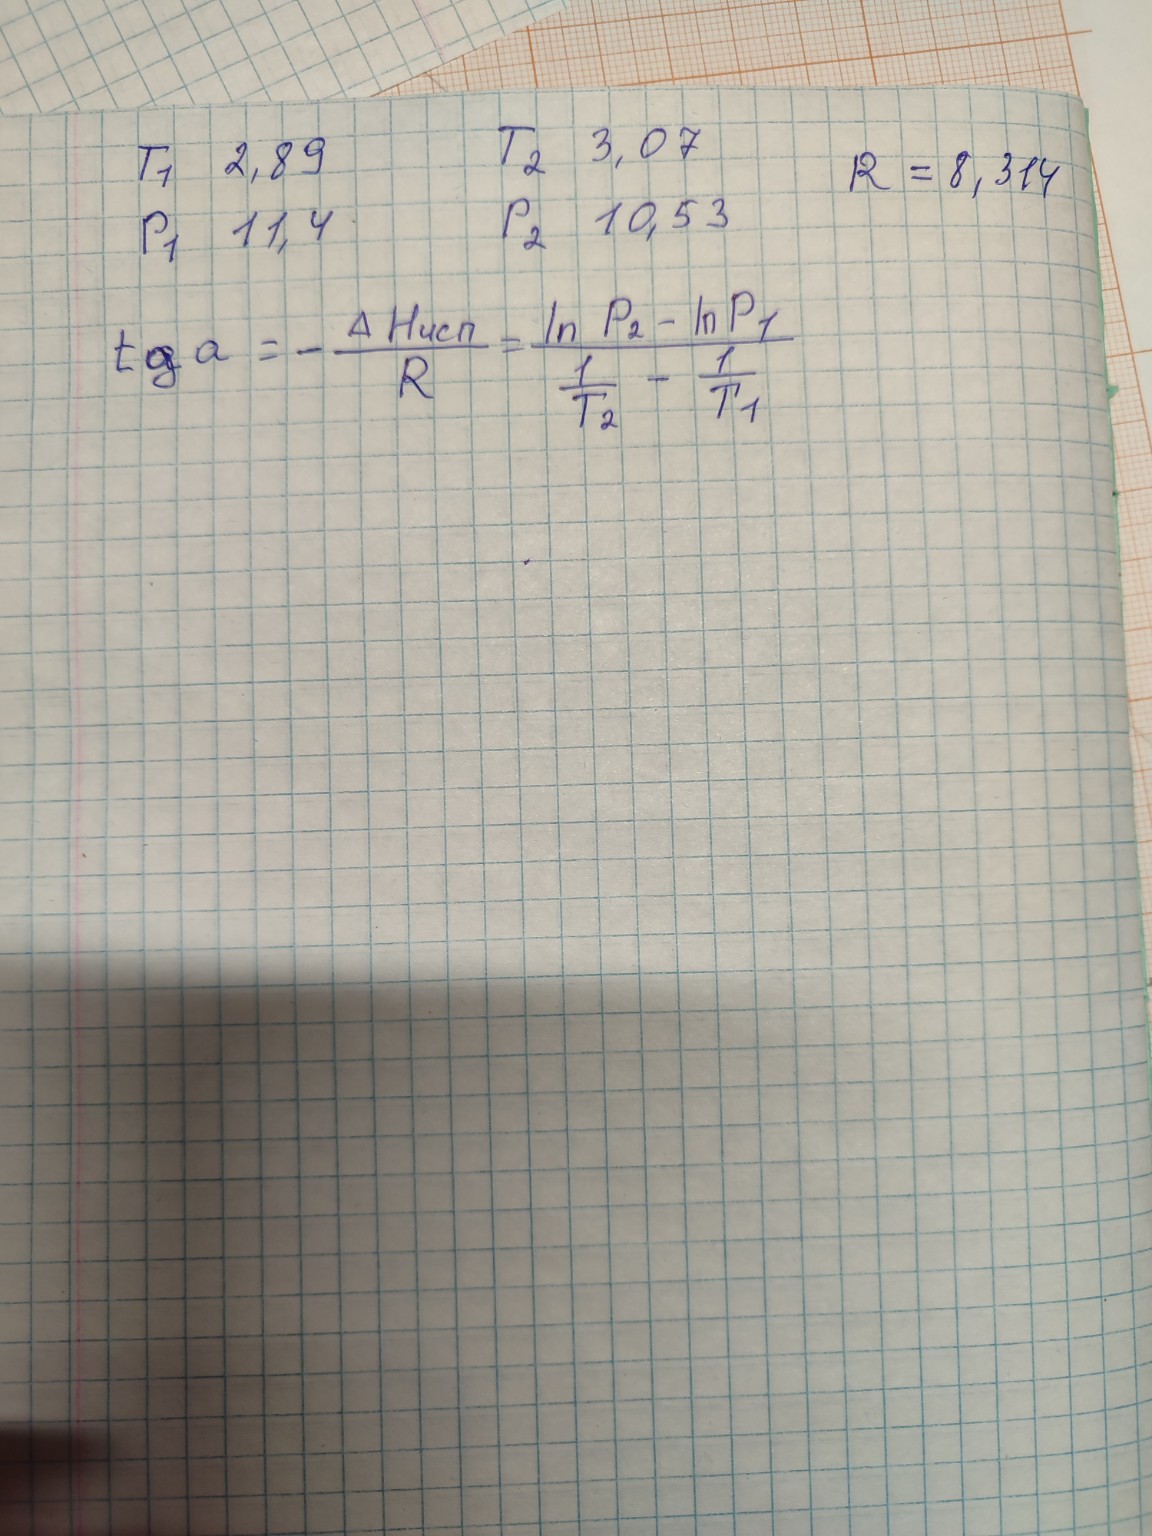 T₁ 2,89 T₂ 3,07 R = 8,314
P₁ 11,4 P₂ 10,53
tg a = - ΔHисп/R = (ln P₂ - ln P₁)/(1/T₂ - 1/T₁)